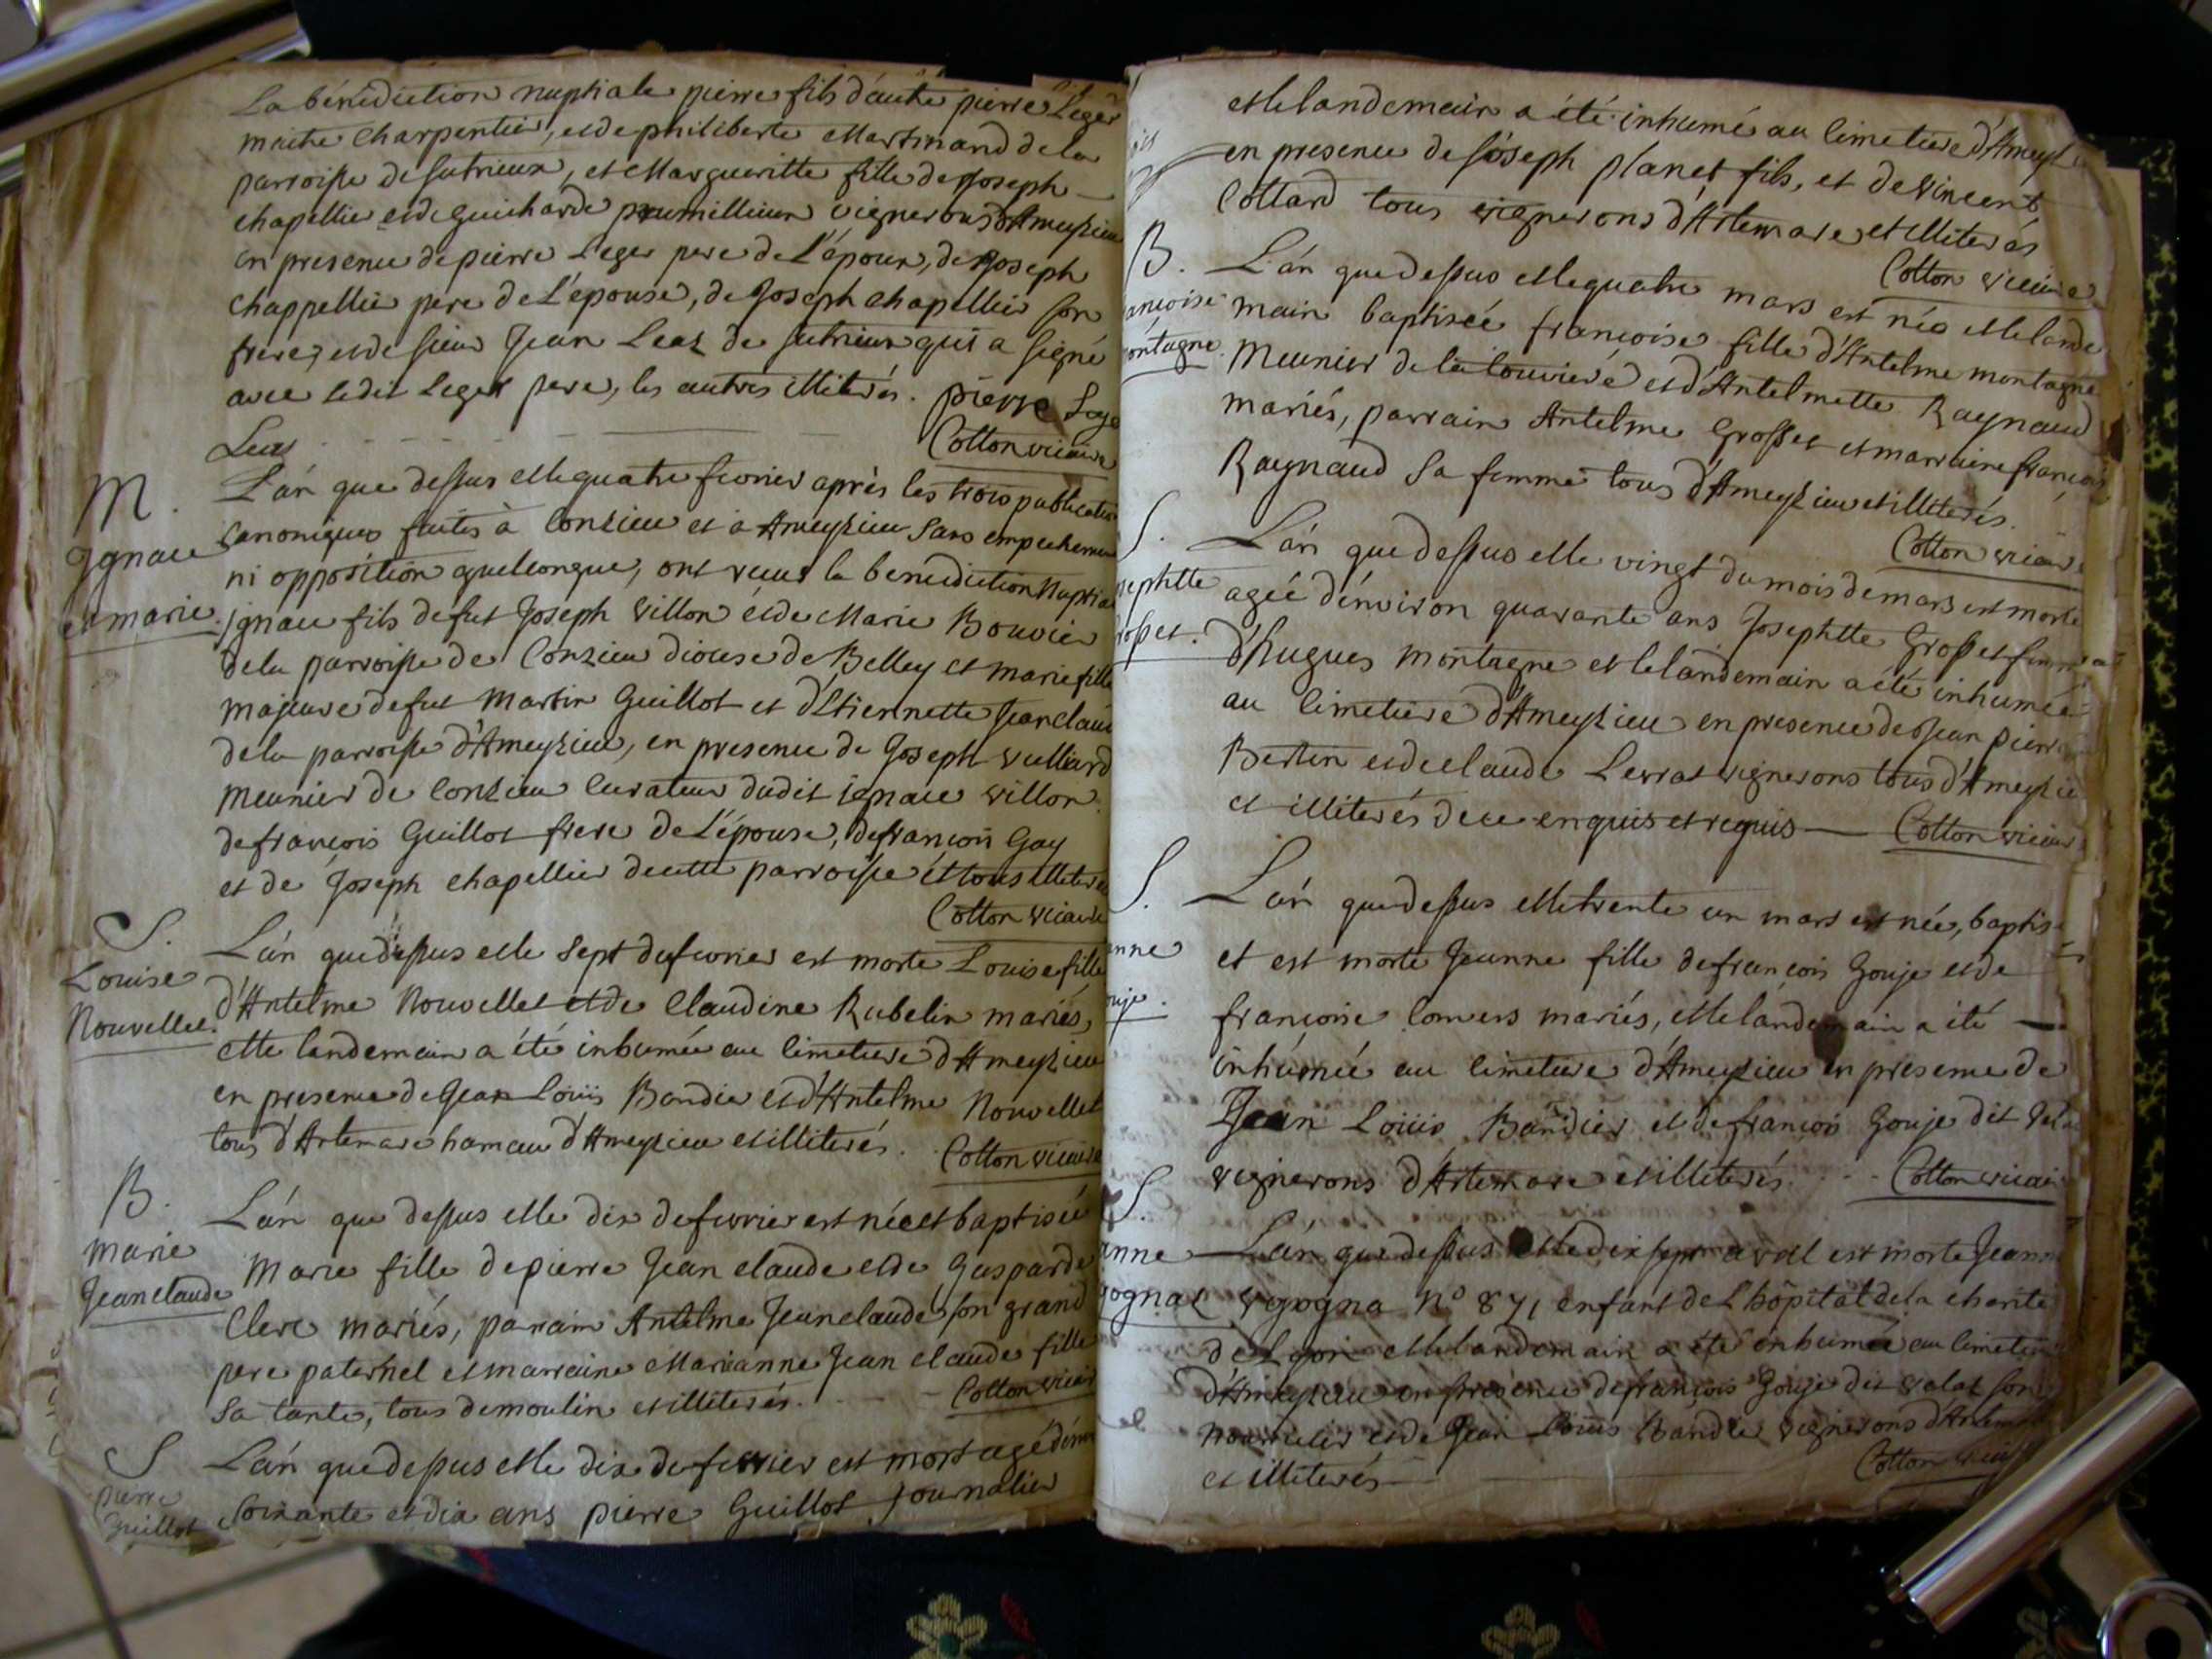 La bénédiction nuptiale pierre fils d'autre pierre Leger
maitre charpentier, et de philiberte Martinand de la
parroisse de sutrieux, et Margueritte fille de Joseph
chapellier et de guicharde prumillieux vignerons d'Ameyzieu
en presence de pierre Leger pere de L'époux, de Joseph
chappellier pere de L'épouse, de Joseph chapellier son
frere, et de sieur Jean Leaz de sutrieux qui a signé
avec ledit Leger pere, les autres illiterés. pierre Lege
Leaz Cotton vicaire
M. L'án que dessus et le quatre fevrier après les trois publication
canoniques faites à Conzieu et à Ameyzieu sans empechement
ignace ni opposition quelconque, ont reçus la benediction nuptial
et marie. ignace fils de fut Joseph Villon et de Marie Bouvier
de la parroisse de Conzieu diocese de Belley et marie fille
majeure de fut Martin Guillot et d'Etiennette Jeanclaud
de la parroisse d'Ameyzieu, en presence de Joseph Vulliard
meunier de Conzieu curateur dudit ignace villon
de françois Guillot frere de L'épouse, de françois Gay
et de Joseph chapellier de cette parroisse et tous illiterés
Cotton vicaire
S. L'án que dessus et le sept de fevrier est morte Louise fille
Louise d'Antelme Nouvellet et de Claudine Rubelin mariés,
Nouvellet. et le landemain a été inhumée au cimetiere d'Ameyzieu
en presence de Jean Louis Bandier et d'Antelme Nouvellet
tous d'Artemare hameau d'Ameyzieu et illiterés. Cotton vicaire
B. L'án que dessus et le dix de fevrier est née et baptisée
marie Marie fille de pierre Jean claude et de Gasparde
Jeanclaude Clerc mariés, parrain Antelme Jeanclaude son grand
pere paternel et marraine Marianne Jean claude fille
sa tante, tous de moulin et illiterés. Cotton vicair
S L'án que dessus et le dix de fevrier est mort agé d'envi
pierre Guillot soixante et dix ans pierre Guillot journalier
et le landemain a été inhumé au cimetiere d'Ameyzi
en presence de Joseph planet fils, et de vincent
Cottard tous vignerons d'Artemare et illiterés
Cotton vicaire
B. L'án que dessus et le quatre mars est née et le lande
ancoise main baptisée françoise fille d'Antelme montagne
ontagne. Meunier de la Louviere et d'Antelmette Raynaud
mariés, parrain Antelme Grosset et marraine françoi
Raynaud sa femme tous d'Ameyzieu et illiterés.
Cotton vicair
S. L'án que dessus et le vingt du mois de mars est morte
sephtte agée d'environ quarante ans Josephtte Grosset femme
rosset. d'hugues montagne et le landemain a été inhumée
au cimetiere d'Ameyzieu en presence de Jean pierre
Bertin et de claude Levrat vignerons tous d'Ameyzie
et illiterés de ce enquis et requis Cotton vicair
S. L'án que dessus et le trente un mars est née, baptis
anne et est morte Jeanne fille de françois Gouje et de
ouje. françoise mariés, et le landemain a été
inhumée au cimetiere d'Ameyzieu en presence de
Jean Louis Bandier et de françois Gouje dit
vignerons d'Artemare et illiterés. Cotton vicair
S.
anne L'án que dessus et le dix sept avril est morte Jeann
vogogna N° 871 enfant de L'hôpital de la charité
de Lyon et le landemain a été inhumée au cimetie
d'Ameyzieu en presence de françois Gouje dit valat son
nourricier et de Jean Louis Bandie vignerons d'Artemar
et illiterés Cotton vicair